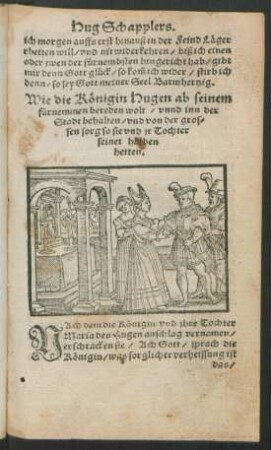 Hug Schapplers.
ich morgen auffs erst hinauß in der Feind Läger
rheiten will/ und nit widerkehren/ biß ich einen
oder zwen der fürnembsten hingericht hab/ gibt
mir denn Gott glück/ so kom ich wider/ stirb ich
denn/ so sey Gott meiner Seel Barmhertzig.
Wie die Königin Hugen ab seinem
fürnemmen bereden wolt/ unnd inn der
Stadt behalten/ und von der gros-
sen sorg so sie und jr Tochter
seinet halben
hetten.
NAch dem die Königin und ihre Tochter
Maria des Hugen anschlag vernamen/
erschracken sie/ Ach Gott/ sprach die
Königin/ was sorglicher verheissung ist
das/